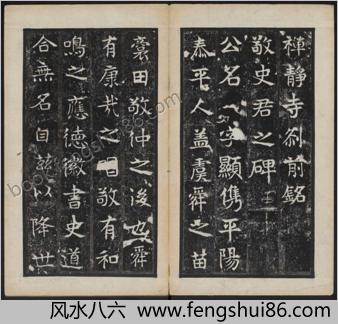 禅静寺刹前銘
敬史君之碑
公名 字顯儁平陽
泰平人盖虞舜之苗
裔田敬仲之後也舜
有康哉之 敬有和
鳴之應德徽書史道
合無名自兹以降世
风水八六 www.fengshui86.com